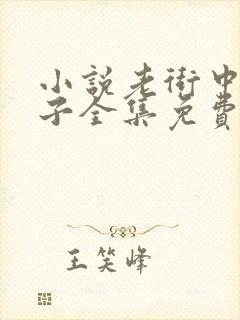 小說老街中
子全集免費
王笑峰